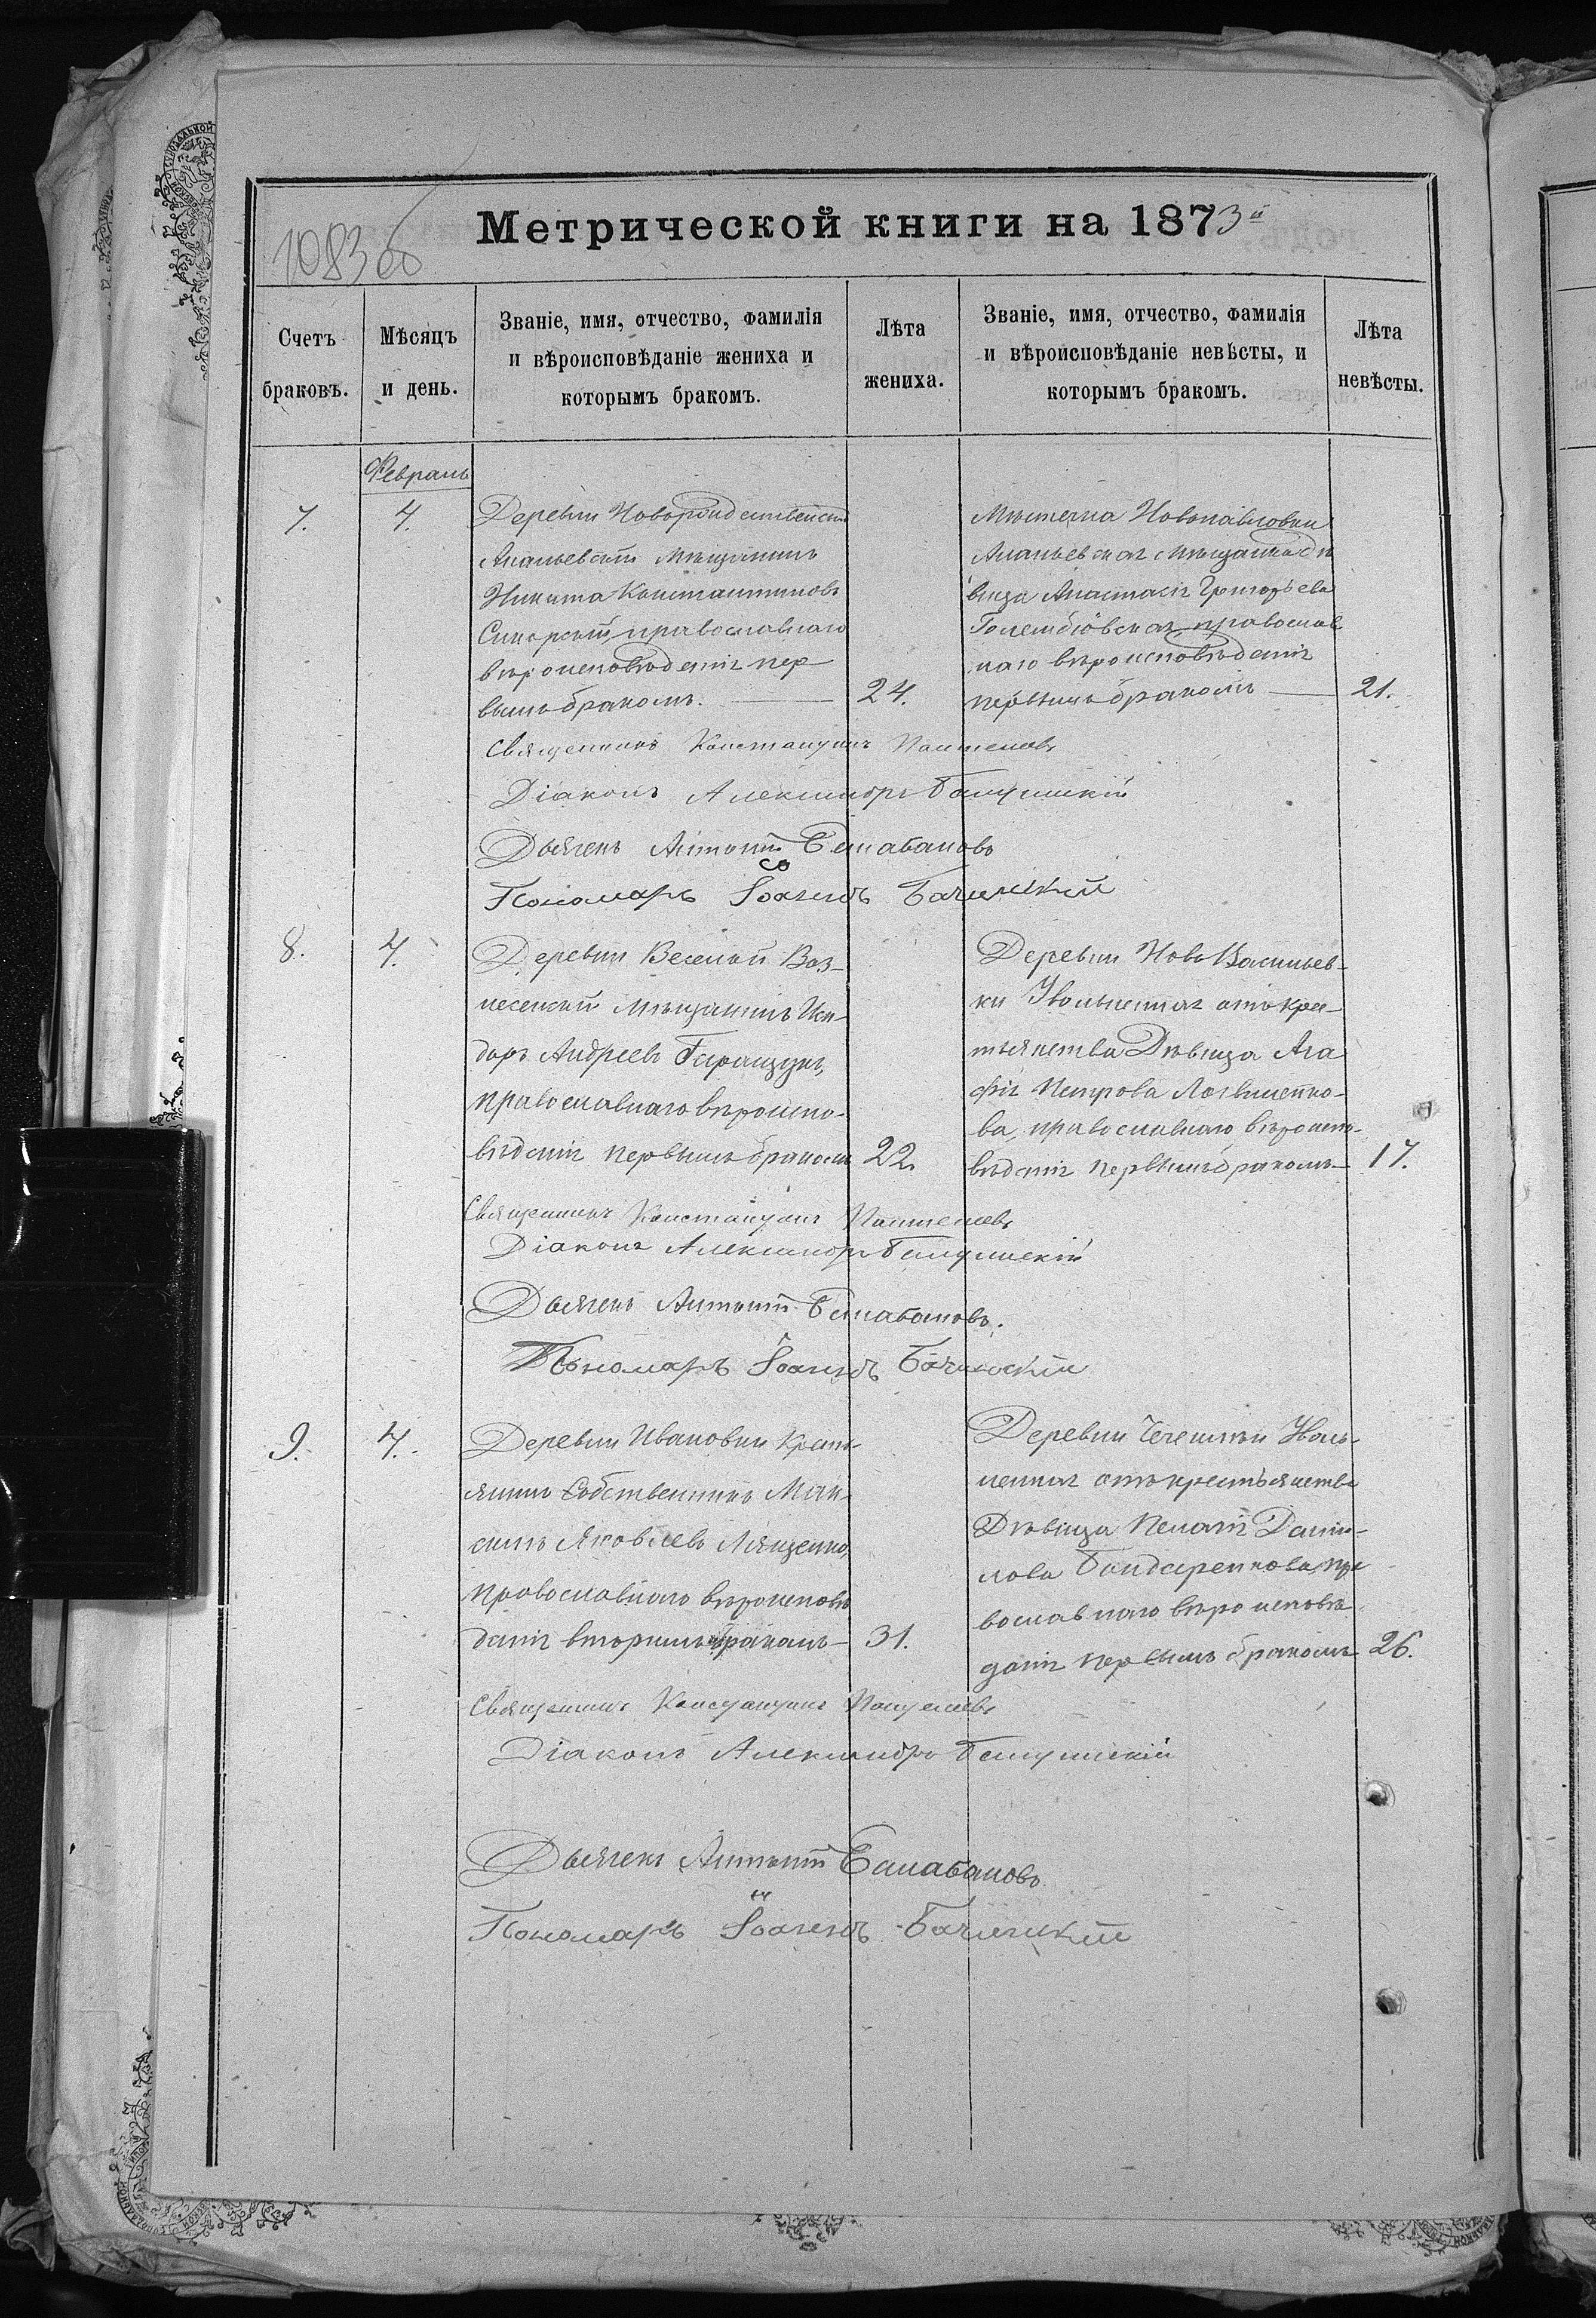 Метрической книги на 1873й
1083 об
Счетъ браковъ.
Мѣсяцъ и день.
Званіе, имя, отчество, фамилія и вѣроисповѣданіе жениха и которымъ бракомъ.
Лѣта жениха.
Званіе, имя, отчество, фамилія и вѣроисповѣданіе невѣсты, и которымъ бракомъ.
Лѣта невѣсты.
Февраль
7.
4.
Деревни Новорождественской
Ананьевскій мѣщанинъ
Никита Константиновъ
православнаго
вѣроисповѣданія пер
вымъ бракомъ.
24.
Мѣстечка Новопавловки
Ананьевская мѣщанка дѣ
вица Анастасія Григорьева
Голембіовская православ
наго вѣроисповѣданія
первымъ бракомъ
21.
Священникъ Константинъ
Діаконъ Александръ
Дьячекъ Антоній Балабановъ
Пономарь Іоаннъ Бачинскій
8.
4.
Деревни Веселой Воз-
несенскій мѣщанинъ Иси-
доръ Андреевъ Таращукъ,
православнаго вѣроиспо-
вѣданія первымъ бракомъ
22.
Деревни Ново Васильев-
ки Увольненная отъ кре-
стьянства Дѣвица Ага
фія Петрова Логвиненко-
ва, православнаго вѣроиспо-
вѣданія первымъ бракомъ
17.
Священникъ Константинъ
Діаконъ Александръ
Дьячекъ Антоній Балабановъ.
Пономарь Іоаннъ Бачинскій
9.
4.
Деревни Ивановки Крест-
янинъ Собственникъ Мак-
симъ Яковлевъ Лященко,
православнаго вѣроисповѣ
данія вторымъ бракомъ
31.
Деревни Уволь-
ненная отъ крестьянства
Дѣвица Пелагія Дани-
лова Бондаренкова, пра
вославнаго вѣроисповѣ
данія первымъ бракомъ
26.
Священникъ Константинъ
Діаконъ Александръ
Дьячекъ Антоній Балабановъ
Пономарь Іоаннъ Бачинскій